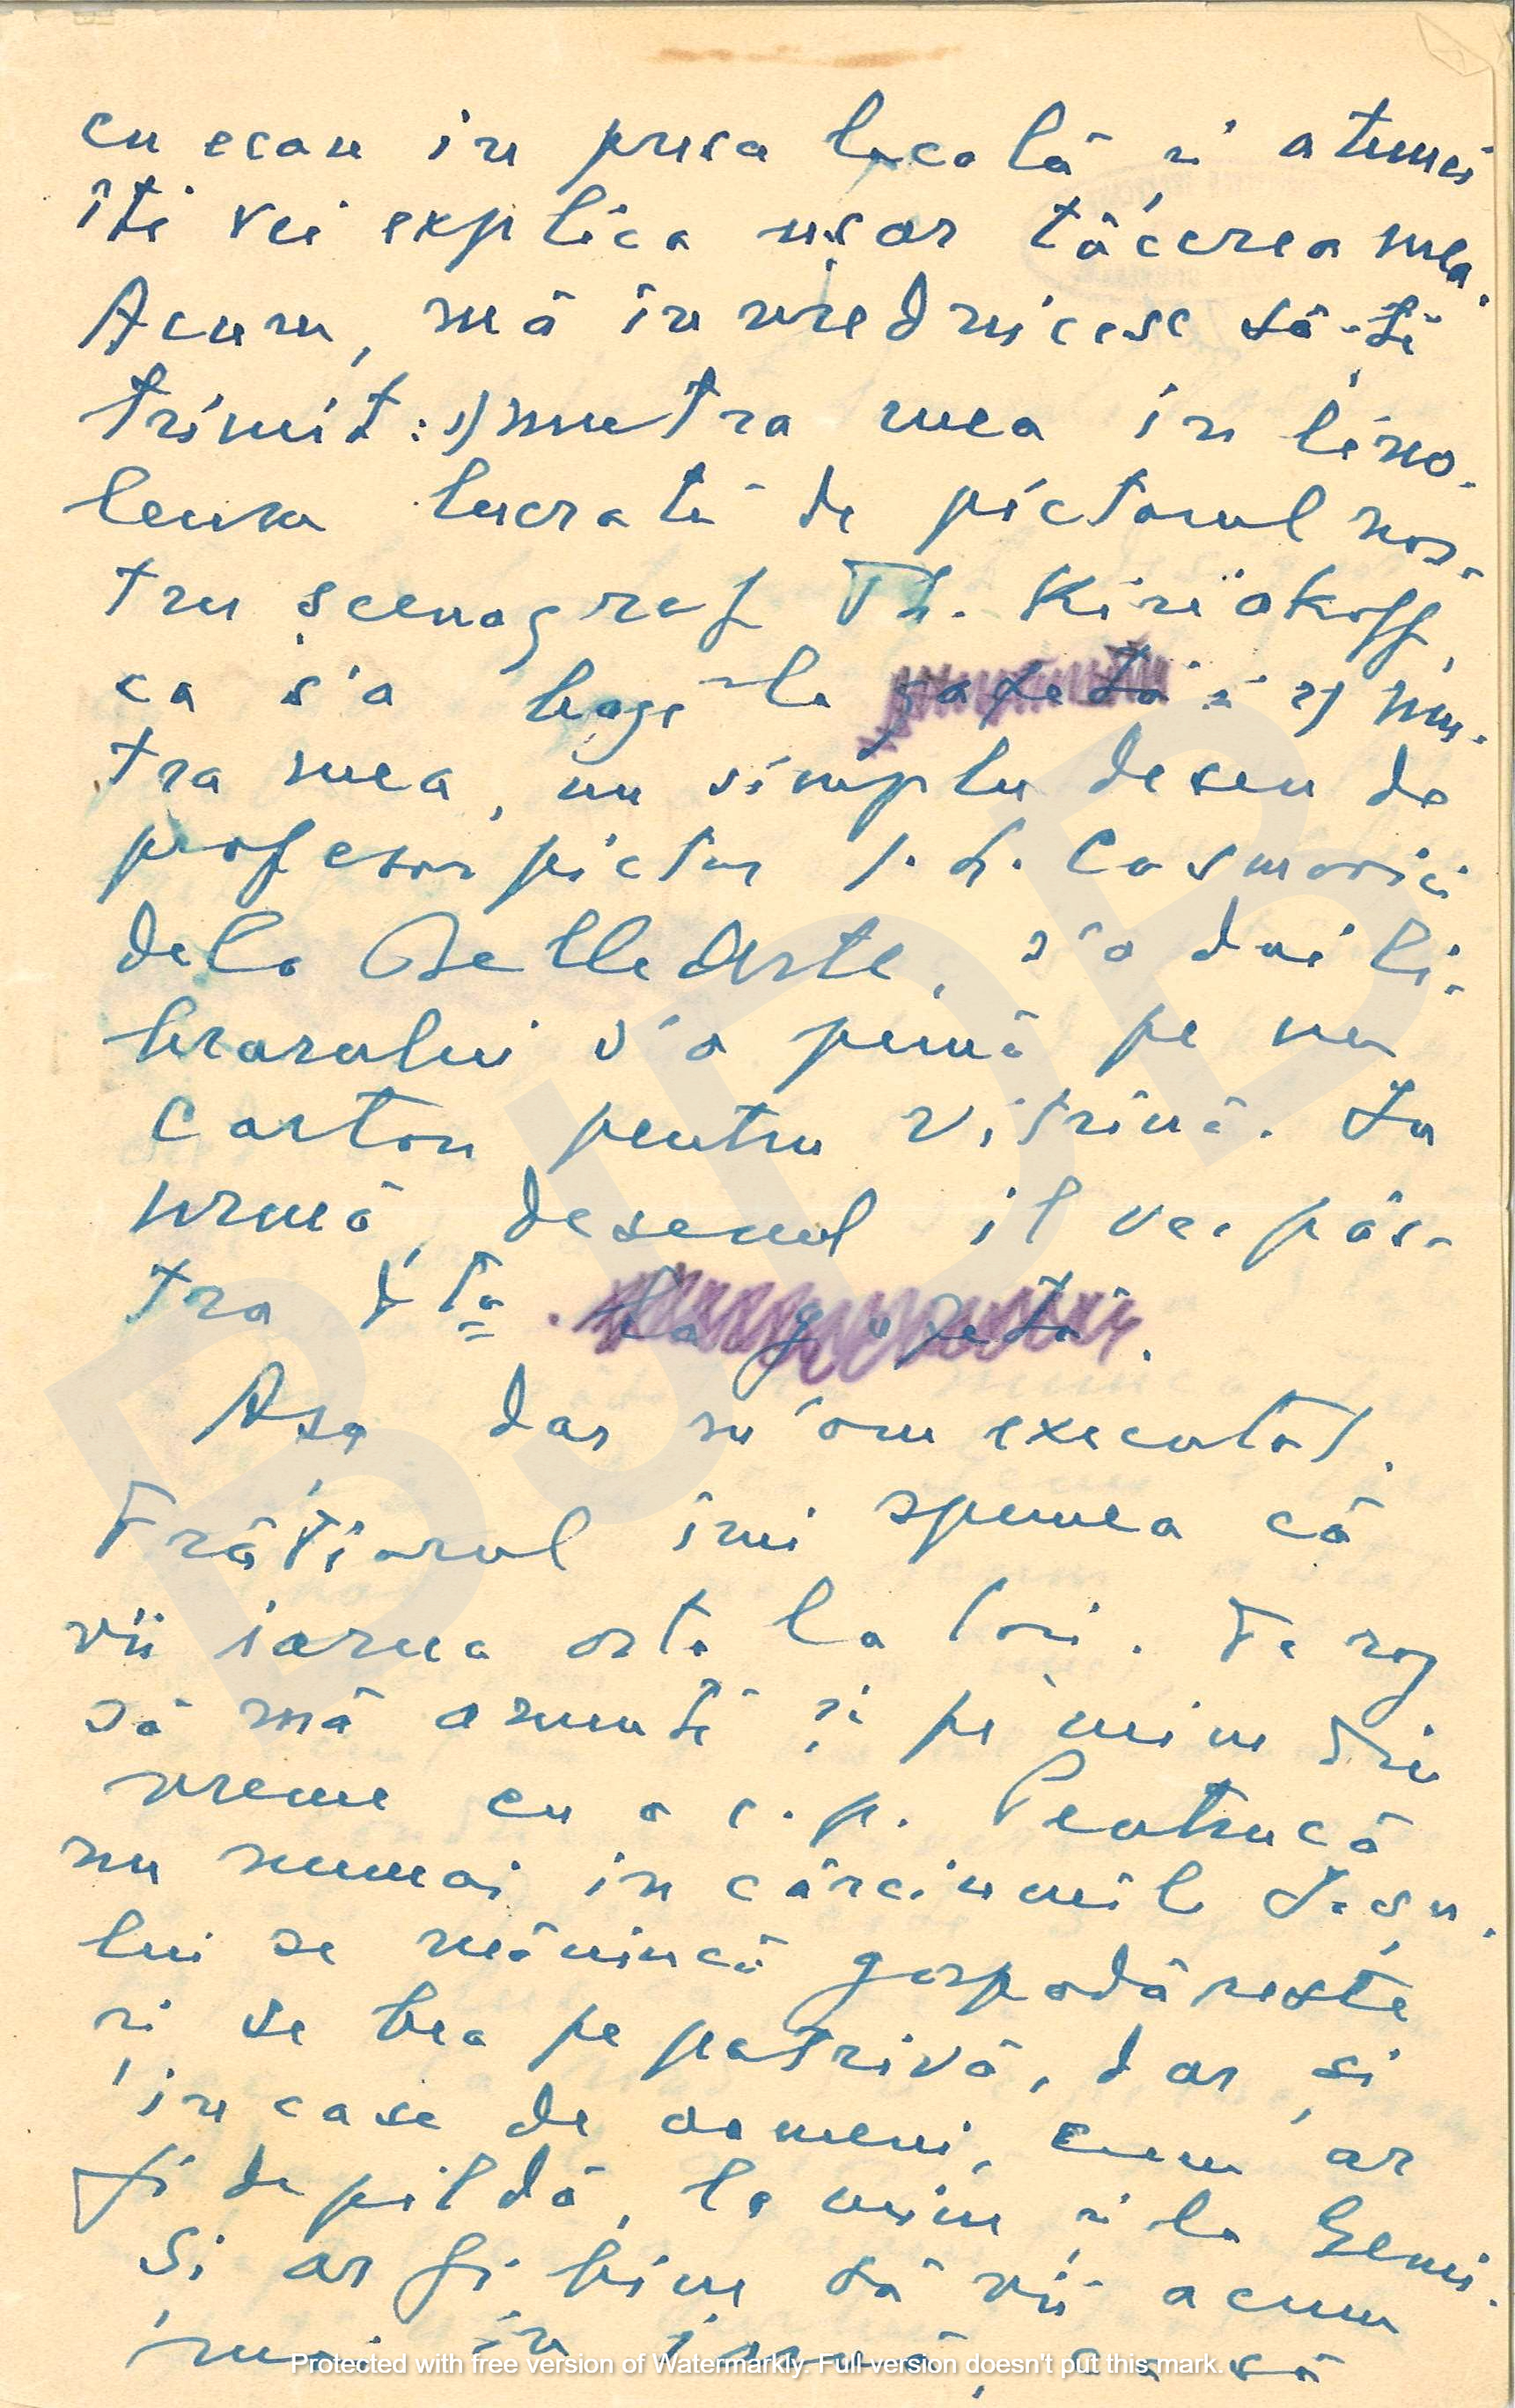 cu ecou în presa locală și atunci
îți vei explica ușor tăcerea mea.
Acum, mă învrednicesc să-ți
trimit: 1) mutra mea în lino-
leum lucrată de pictorul nos-
tru scenograf Th. Kiriakoff,
ca s'a bagi la gazetă și 2) mu-
tra mea, un simplu desen de
profesor pictor Cosmovici
dela Belle Arte, s'o dai li-
brarului s'o pună pe un
carton pentru vitrină. În
urmă, desenul il vei păs-
tra dta. la gazetă.
Așa dar m'am executat.
Frățiorul îmi spunea că
vii iarna asta la Iași. Te rog
să mă anunți și pe mine din
vreme cu o c.p. Pentrucă
nu numai in cârciumile Iașu-
lui se mănincă gospodărește
și se bea pe potrivă, dar și
in case de oameni, cum ar
fi de pildă, la mine și la
Și ar fi bine să vii acum
mai in să
Protected with free version of Watermarkly. Full version doesn't put this mark.
BJDB